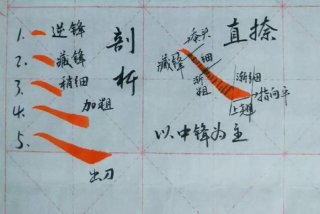 1. 逆锋
2. 藏锋
3. 稍细
4. 加粗
5. 出刀
剖析
直捺
藏锋
细
渐粗
渐细
指向平
上翘
以中锋为主